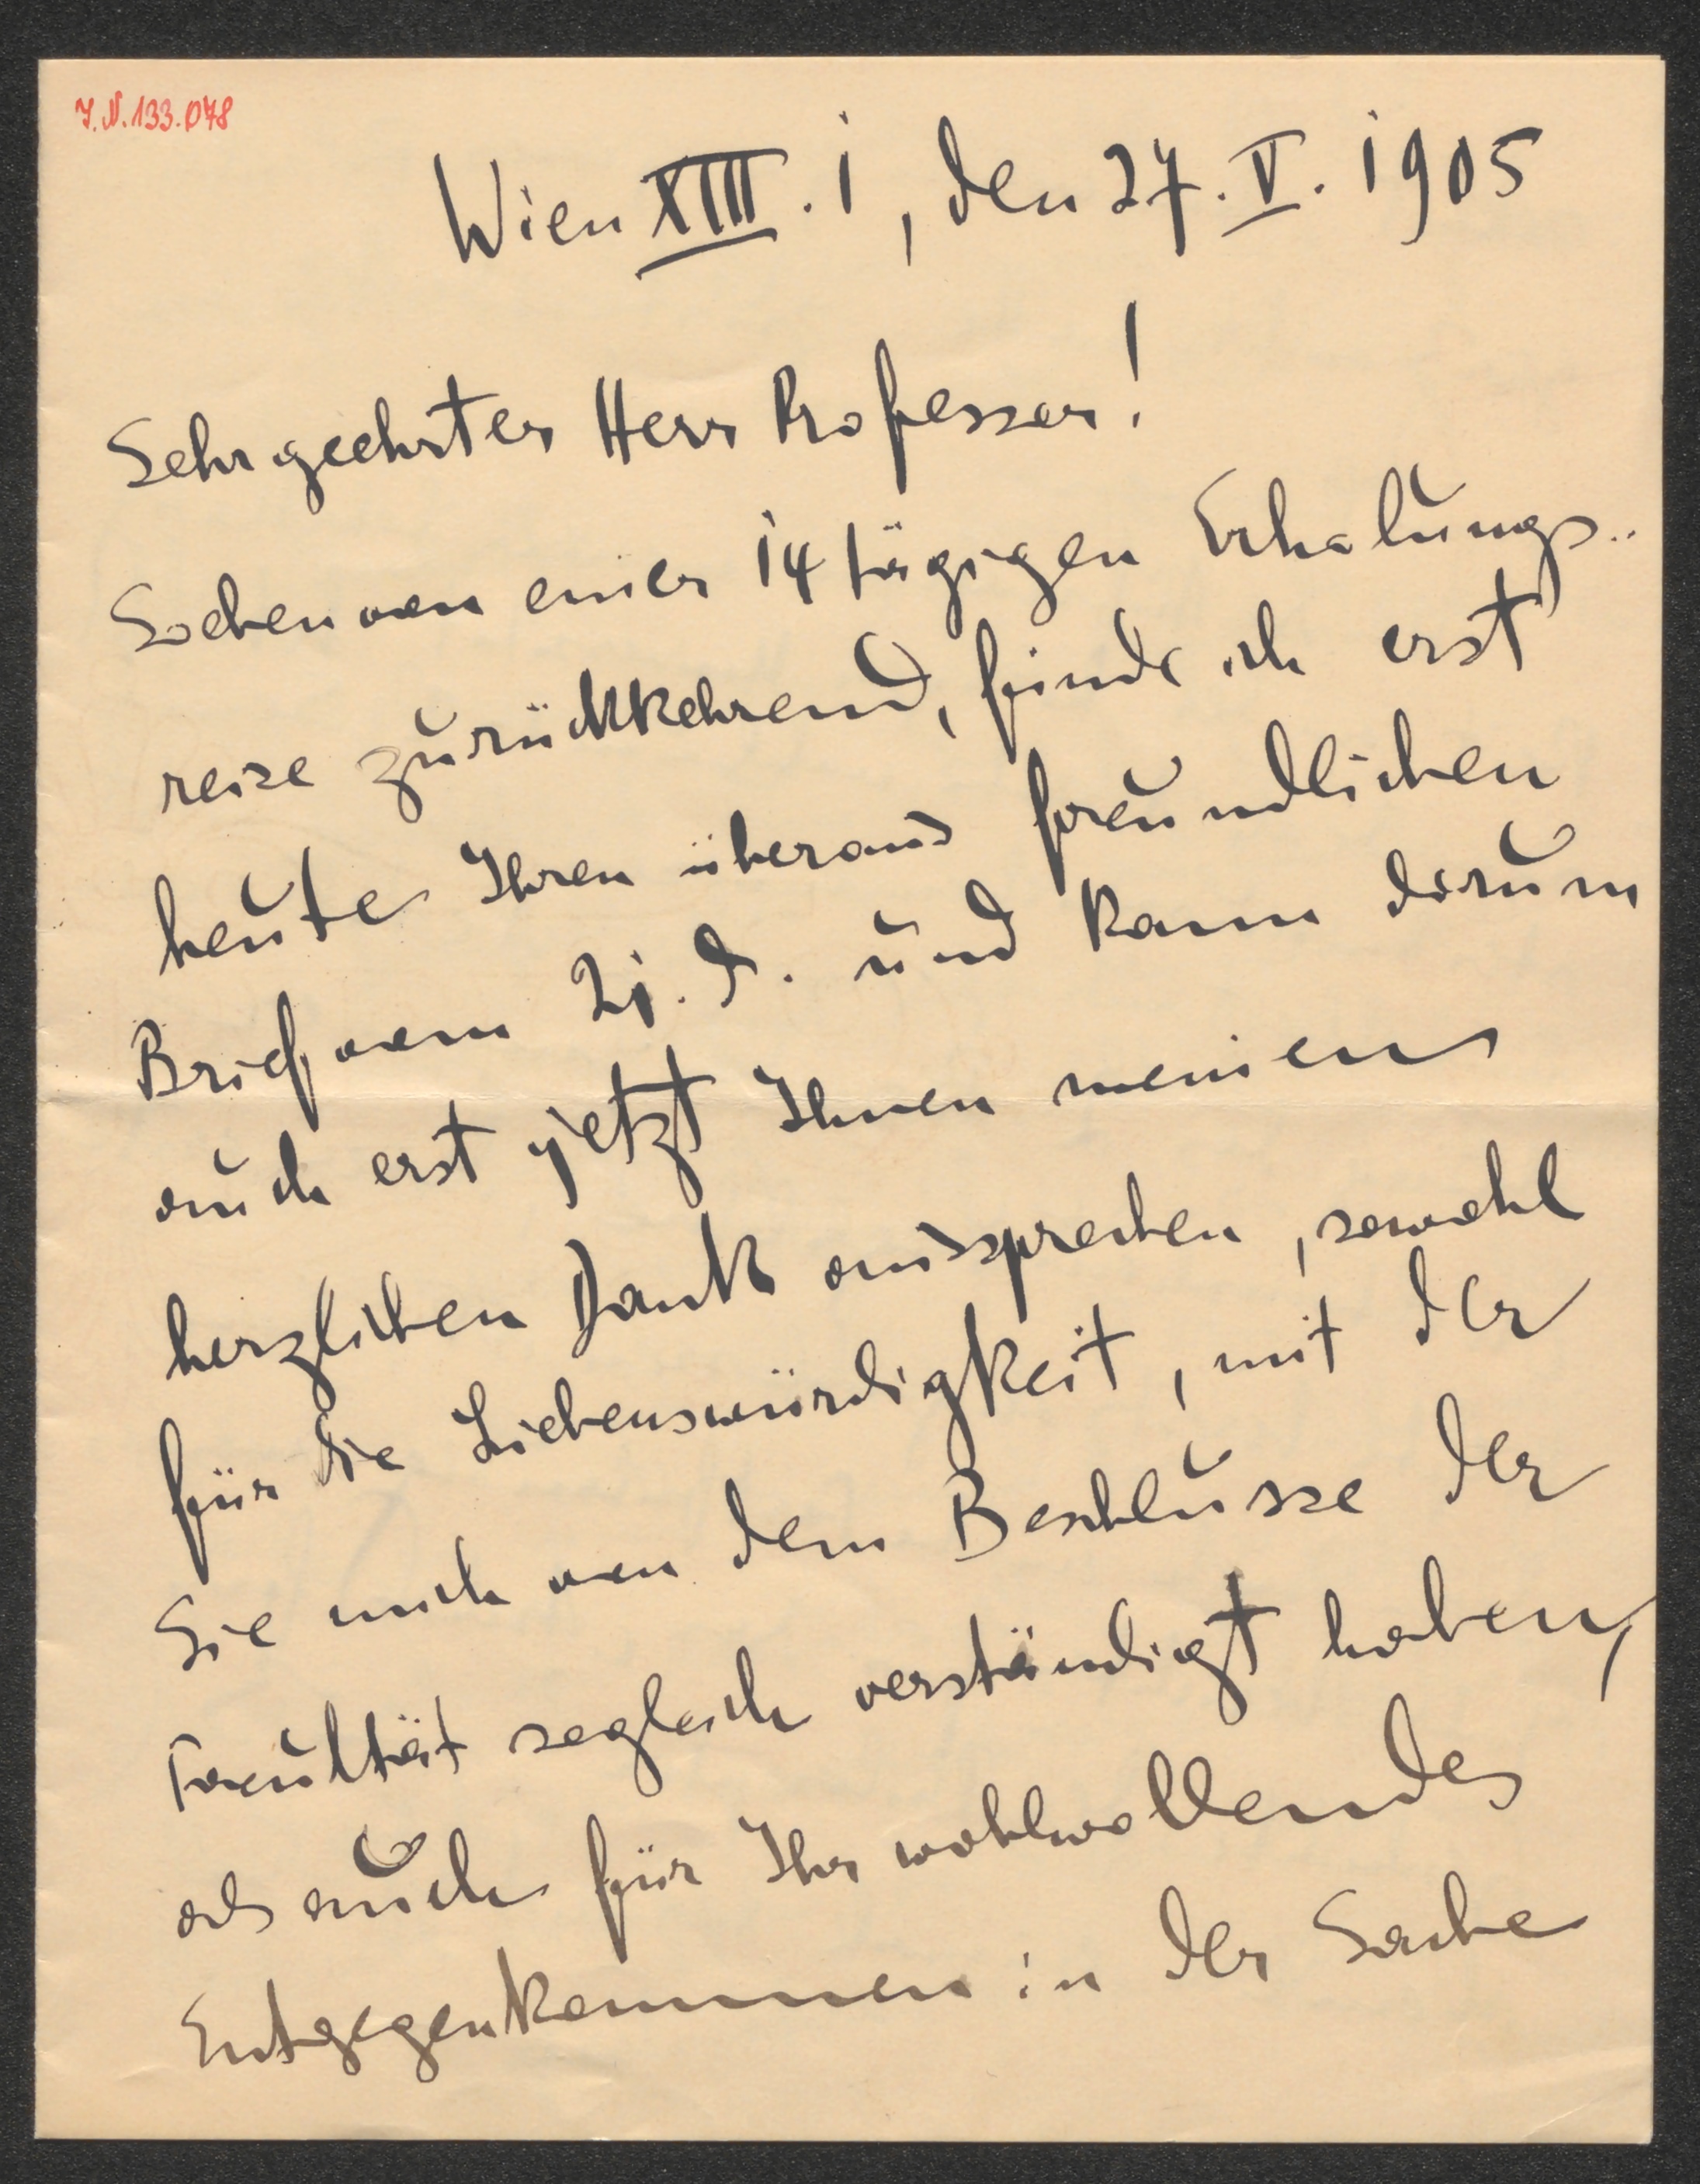 J.N. 133.078
Wien XIII. 1, den 27. V. 1905
Sehr geehrter Herr Professor!
Soeben von einer 14tägigen Erholungs-
reise zurückkehrend, finde ich erst
heute Ihren überaus freundlichen
Brief vom 21. d. und kann darum
auch erst jetzt Ihnen meinen
herzlichen Dank aussprechen, sowohl
für die Liebenswürdigkeit, mit der
Sie mich von dem Beschlusse der
Facultät sogleich verständigt haben,
als auch für Ihr wohlwollendes
Entgegenkommen in der Sache